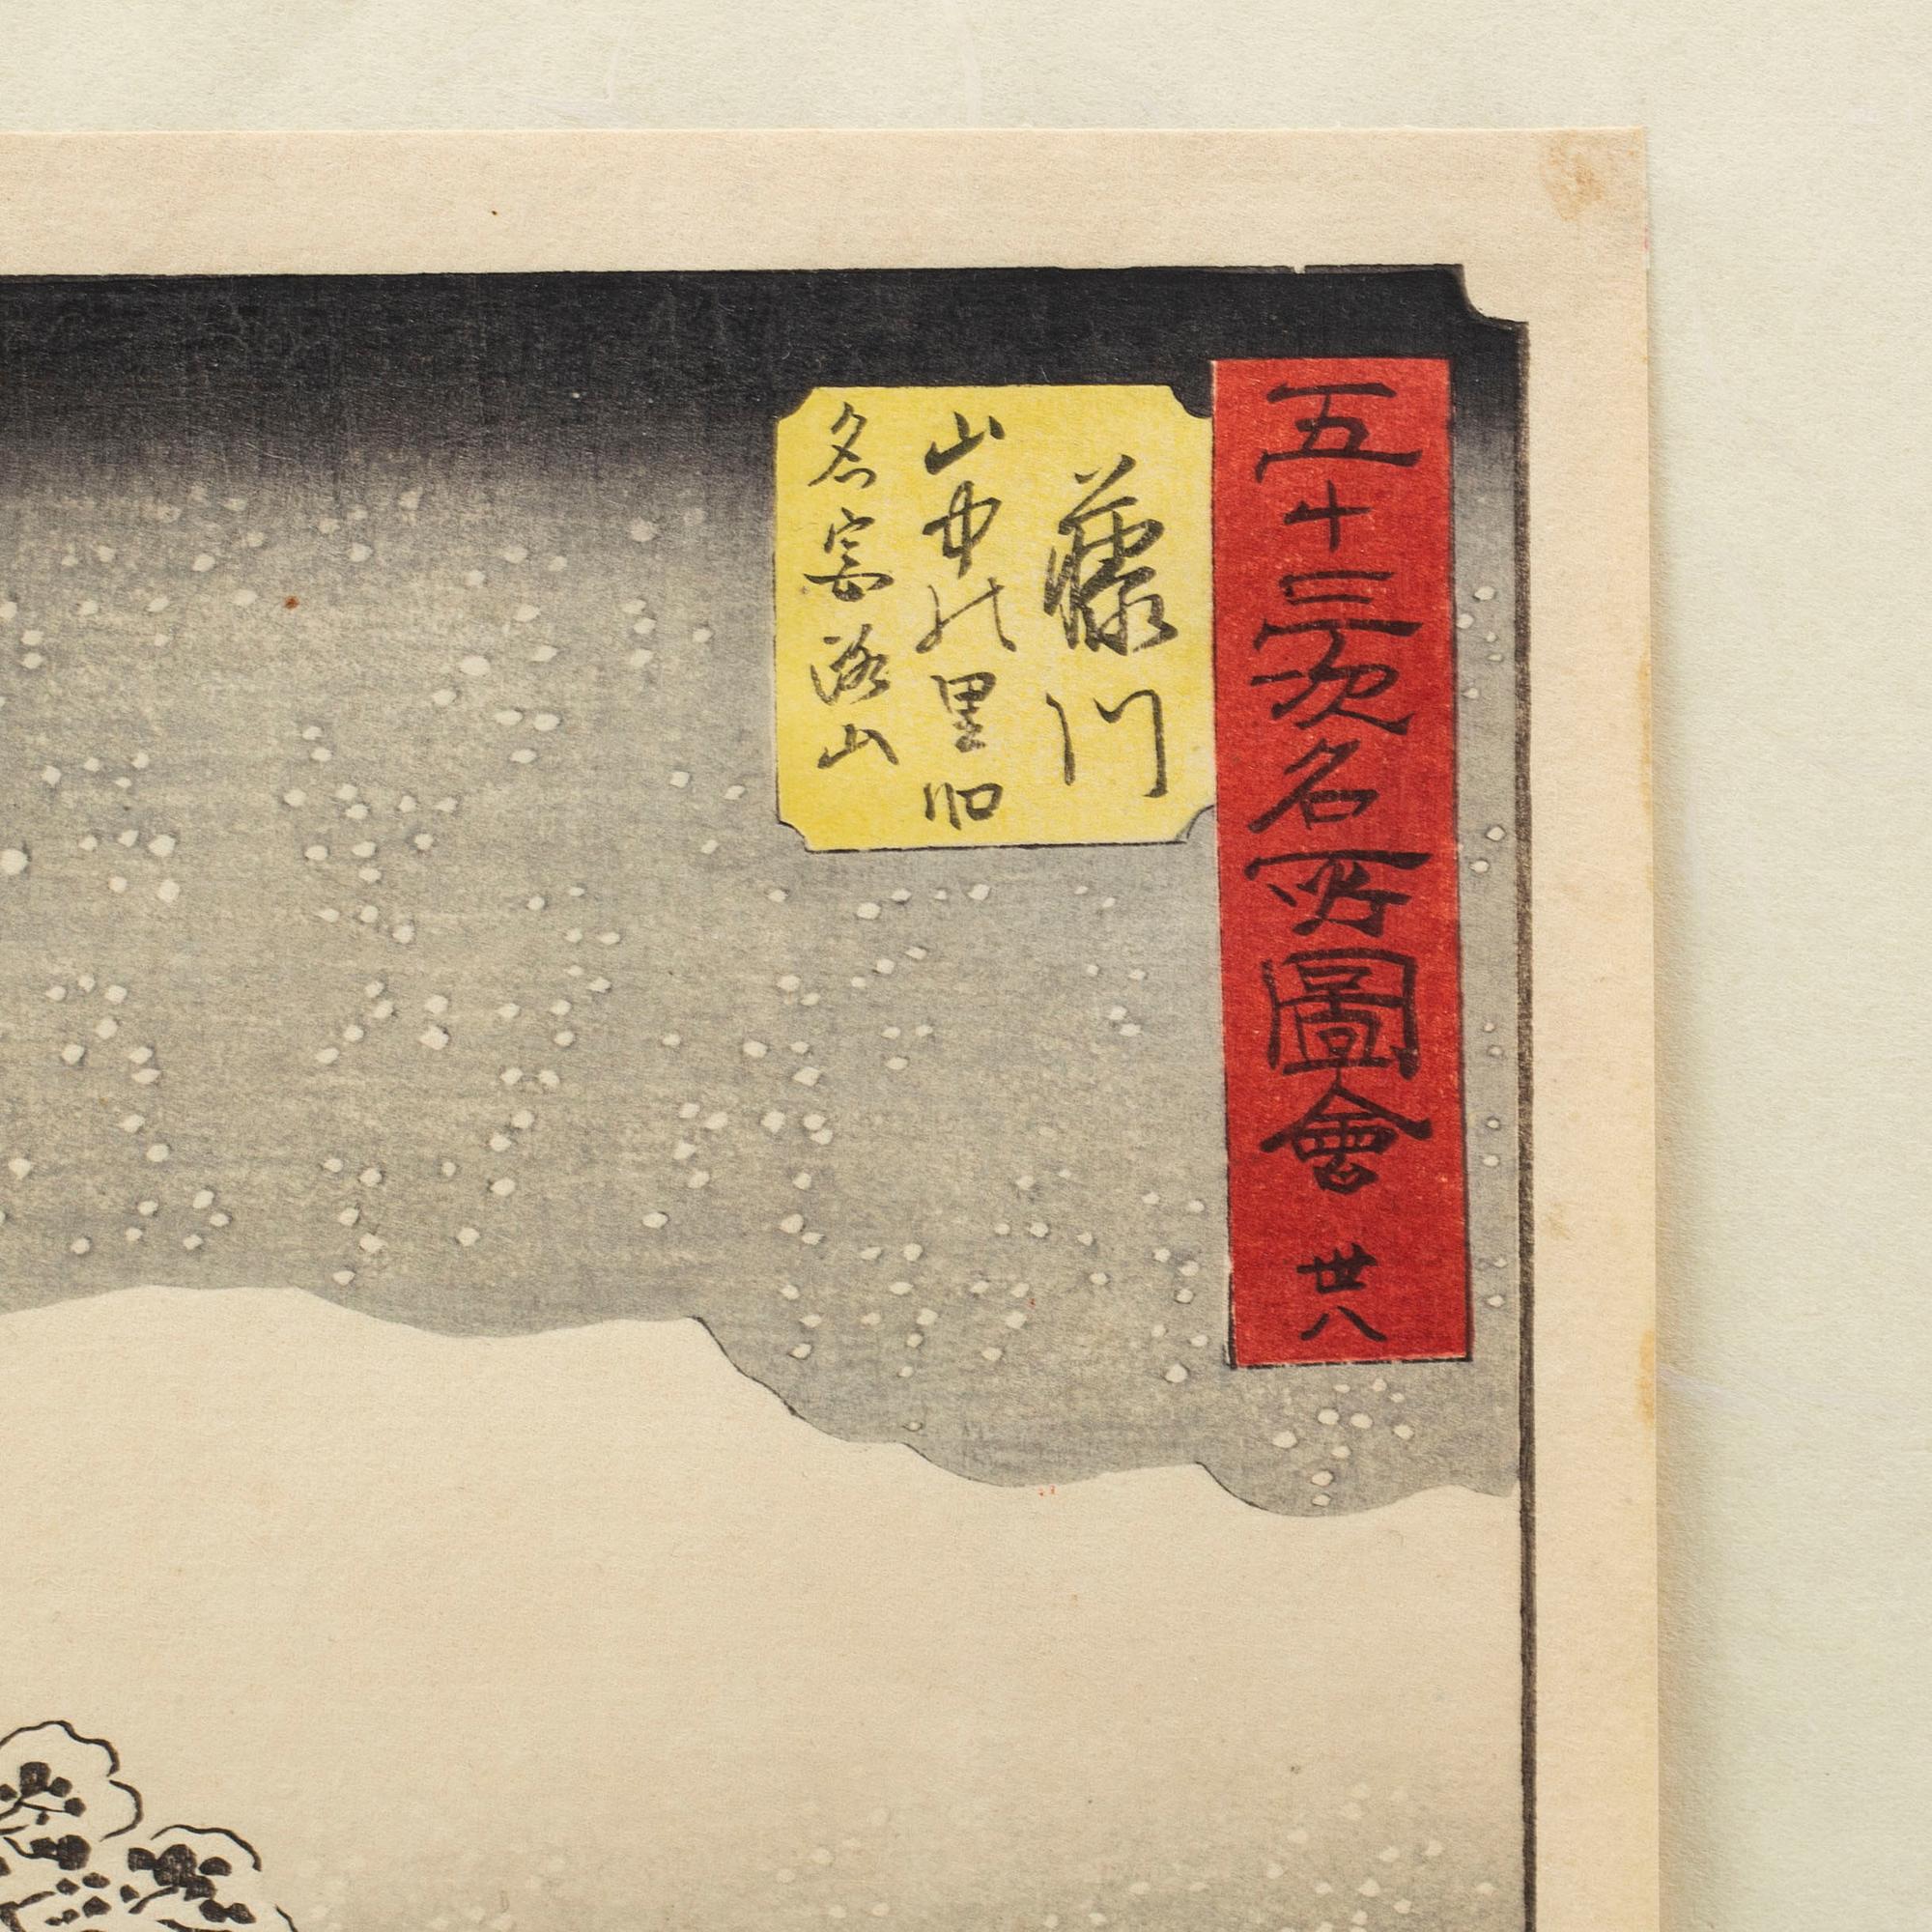 五十三次名所圖會 丗八
藤川
山中の里旧
名宮路山